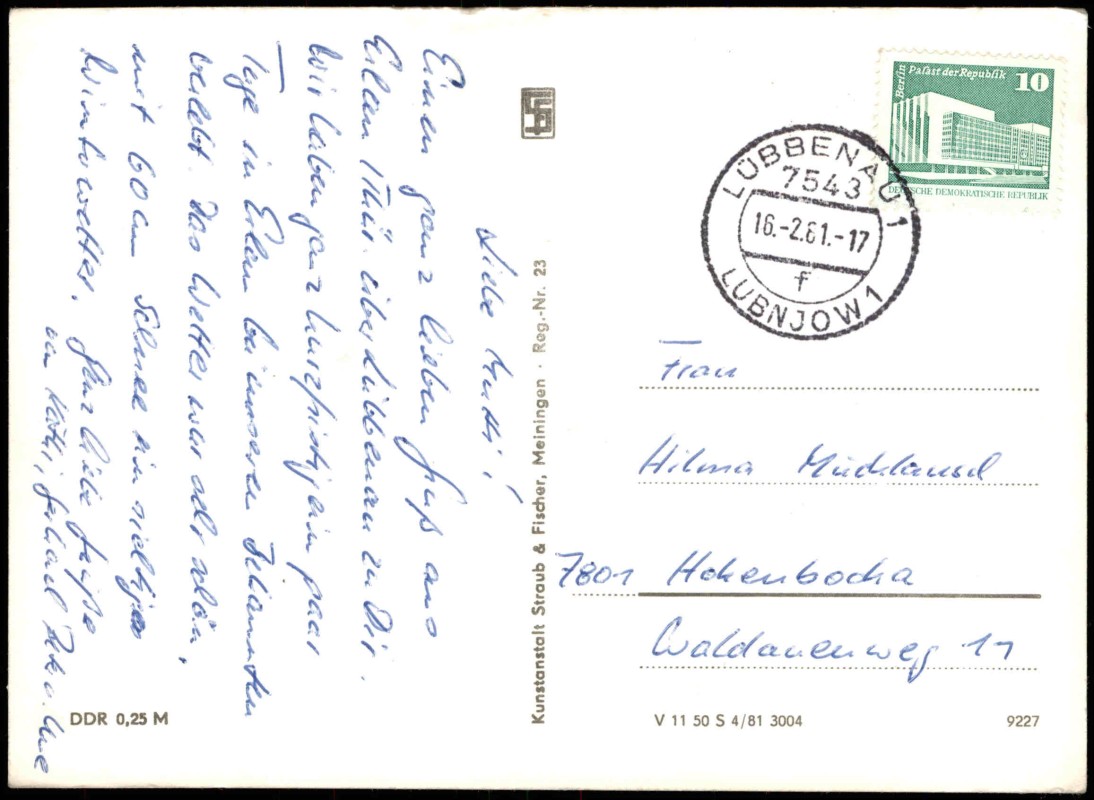 Liebe Mutti!
Einen ganz lieben Gruß aus
Erlau Thür. über Lübbenau zu Dir.
Wir haben ganz kurzfristig ein paar
Tage in Erlau bei unseren Bekannten
verlebt. Das Wetter war sehr schön,
mit 60 cm Schnee ein richtiges
Winterwetter. Ganz liebe Grüße
von
Kunstanstalt Straub & Fischer, Meiningen · Reg.-Nr. 23
Berlin Palast der Republik 10
DEUTSCHE DEMOKRATISCHE REPUBLIK
LÜBBENAU 1
7543
16.-2.81.-17
f
LUBNJOW 1
Frau
Hilma
7801 Hohenbocka
Waldauenweg 11
DDR 0,25 M
V 11 50 S 4/81 3004
9227